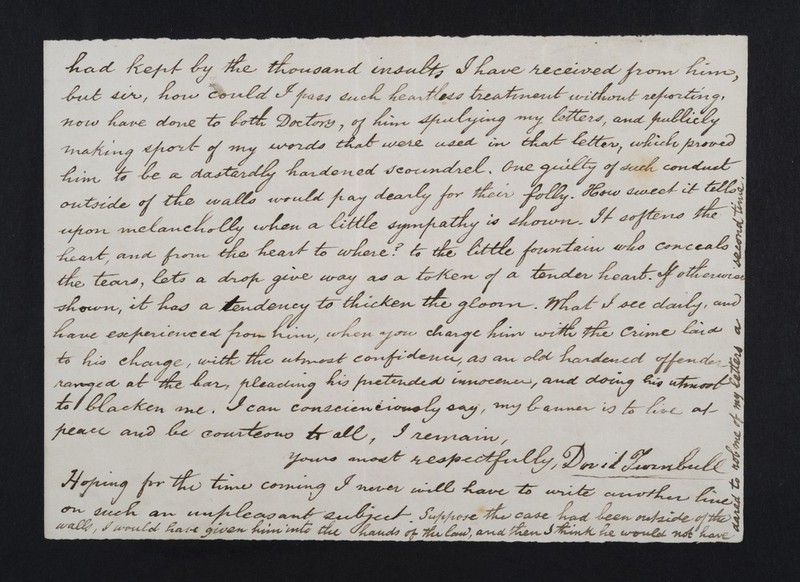 had kept by the thousand insults I have received from him,
but sir, how could I pass such heartless treatment without reporting.
now have done to both Doctors, of him spulying my letters, and publicly
making sport of my words that were used in that letter, which proved
him to be a dastardly hardened scoundrel. One guilty of such conduct
outside of the walls would pay dearly for their folly. How sweet it tells
upon melancholly when a little sympathy is shown. It softens the
heart, and from the heart to where? to the little fountain who conceals
the tears, lets a drop give way as a token of a tender heart. If otherwise
shown, it has a tendency to thicken the gloom. What I see daily, and
have experienced from him, when you charge him with the crime laid
to his charge, with the utmost confidence, as an old hardened offender
ranged at the bar, pleading his pretended innocence, and doing his utmost
to blacken me. I can conscienciously say, my banner is to live at
peace and be courteous to all, I remain,
yours most respectfully, David Turnbull
Hoping for the time coming I never will have to write another line
on such an unpleasant subject. Suppose the case had been outside of the
walls, I would have given him into the hands of the law, and then I think he would not have
dared to rob me of my letters a second time.